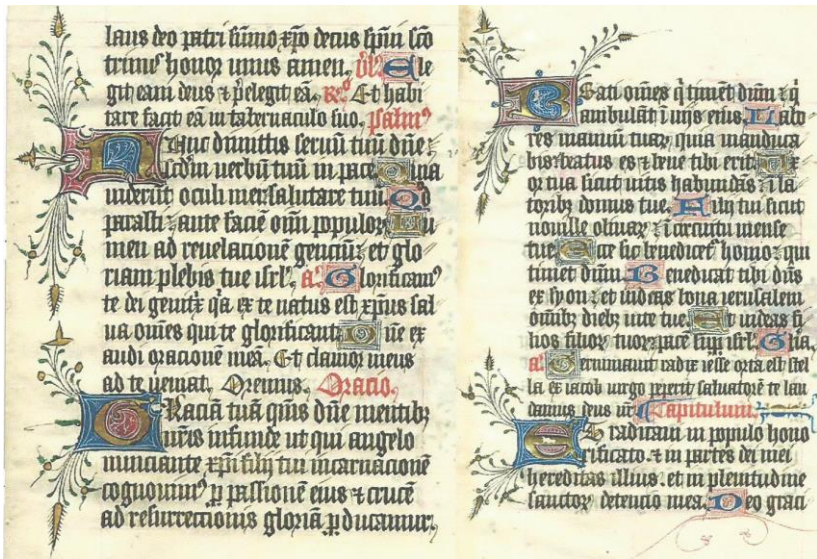 laus deo patri sũmo xp̃o decus sp̃ui sc̃o
trinꝰ honor unus amen. v̊. Ele
git eam deus ⁊ p̃elegit eã. R̊. Et habi
tare facit eã in tabernaculo suo. psalmꝰ
Nunc dimittis seruũ tuũ dñe:
sc̃dm uerbũ tuũ in pace Quia
uiderũt oculi mei: salutare tuũ Qd̃
parasti: ante faciẽ oĩm populoꝝ Lu
men ad reuelacionẽ genciũ: et glo
riam plebis tue isrl'. a. Glorificamꝰ
te dei genitx̃ q̃a ex te natus est xp̃us sal
ua omẽs qui te glorificant. Dñe ex
audi oracionẽ meã. Et clamor meus
ad te ueniat. Oremus. Oracio.
Graciã tuã q̃ms dñe mentibꝫ
nr̃is infunde ut qui angelo
nunciante xp̃i filij tui incarnacionẽ
cognouimꝰ ꝑ passionẽ eius ⁊ crucẽ
ad resurrectionis gloriã ꝑducamur.
Beati omẽs q̃ timẽt dñm ⁊ q̃
ambulãt ĩ uijs eius. Labo
res manuũ tuaꝝ quia manduca
bis: beatus es ⁊ bene tibi erit. Ux
or tua sicut uitis habundãs: ĩ la
teribꝫ domus tue. Filij tui sicut
nouelle oliuaꝝ: ĩ circuitu mense
tue. Ecce sic benedicet̃ homo: qui
timet dñm. Benedicat tibi dñs
ex syon: et uideas bona ierusalem
omĩbꝫ diebꝫ uite tue. Et uideas fi
lios filioꝝ tuoꝝ: pacẽ suꝑ isrl'. Glia.
a. Germinauit radix iesse orta est stel
la ex iacob uirgo peperit saluatorẽ te lau
damus deus nr̃. Capitulum.
Et radicaui in populo hono
rificato. ⁊ in partes dei mei
hereditas illius. et in plenitudine
sanctoꝝ detencio mea. Deo graci